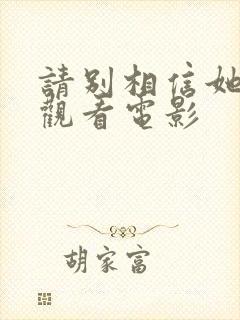 請別相信她
觀看電影
胡家富